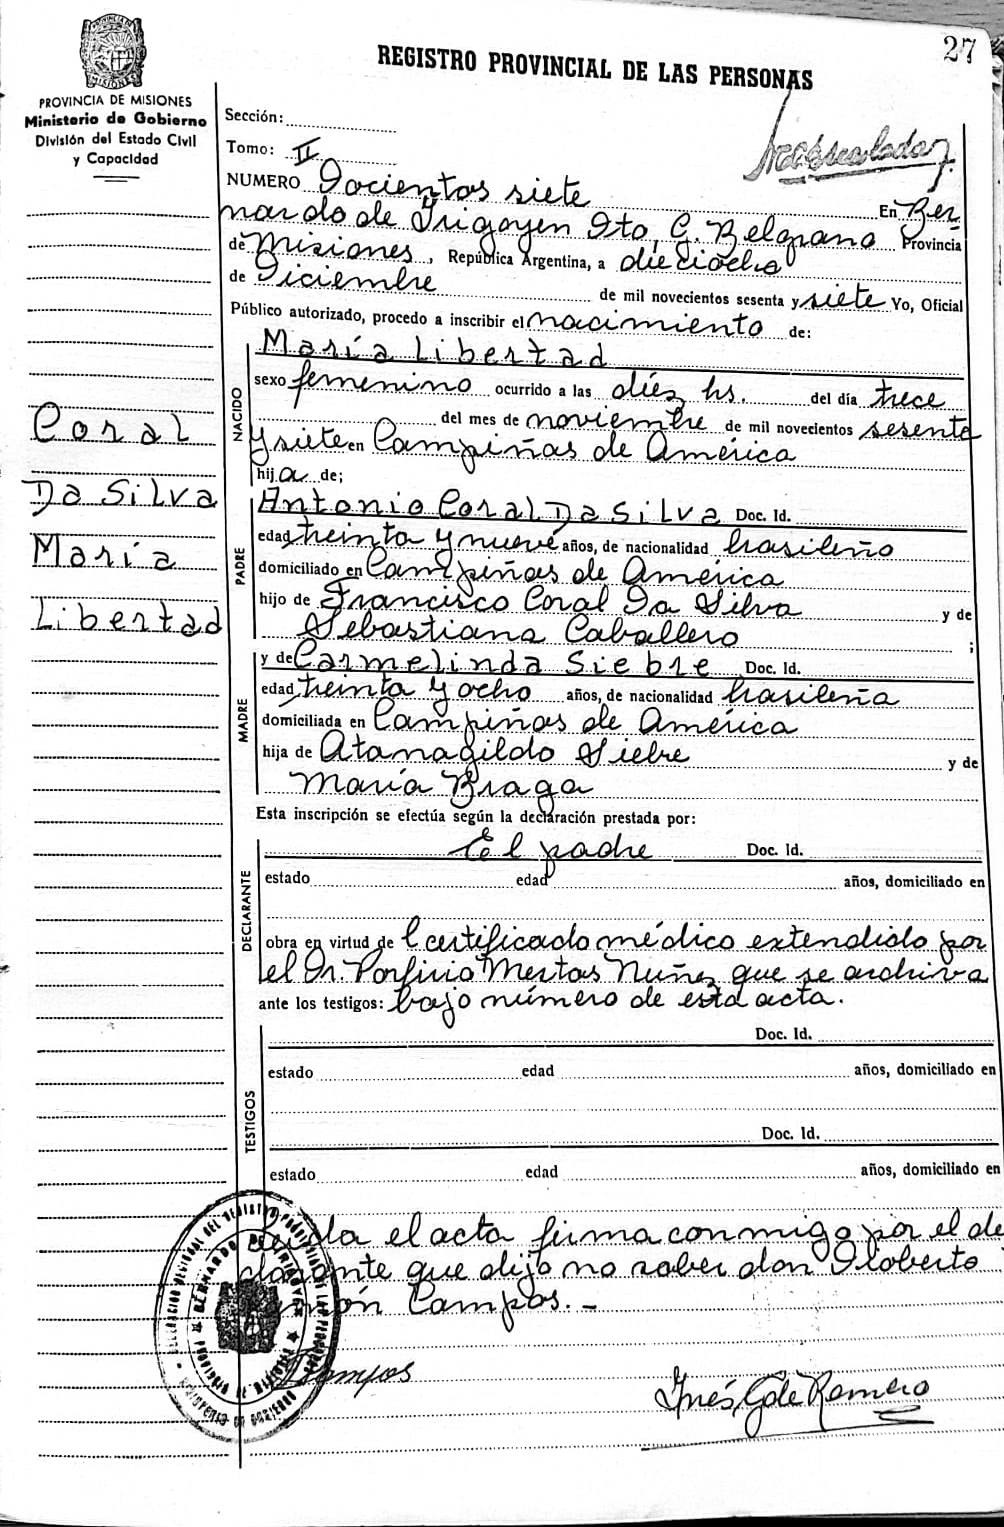 27
REGISTRO PROVINCIAL DE LAS PERSONAS
PROVINCIA DE MISIONES
Ministerio de Gobierno
División del Estado Civil
y Capacidad
Sección:
Tomo: II
NUMERO Docientos siete En Ber
nardo de Irigoyen Dto. G. Belgrano Provincia
de Misiones, República Argentina, a dieciocho
de Diciembre de mil novecientos sesenta y siete Yo, Oficial
Público autorizado, procedo a inscribir el nacimiento de:
María Libertad
NACIDO
sexo femenino ocurrido a las diéz hs. del día trece
del mes de noviembre de mil novecientos sesenta
y siete en Campiñas de América
hija de;
Coral
Da Silva
María
Libertad
Antonio Coral Da Silva Doc. Id.
PADRE
edad treinta y nueve años, de nacionalidad brasileño
domiciliado en Campiñas de América
hijo de Francisco Coral Da Silva y de
Sebastiana Caballero ;
y de Carmelinda Siebre Doc. Id.
MADRE
edad treinta y ocho años, de nacionalidad brasileña
domiciliada en Campiñas de América
hija de Atanagildo Siebre y de
María Braga
Esta inscripción se efectúa según la declaración prestada por:
El padre Doc. Id.
DECLARANTE
estado edad años, domiciliado en
obra en virtud de l certificado médico extendido por
el Dr. Porfirio Mertas Nuñez que se archiva
ante los testigos: bajo número de esta acta.
TESTIGOS
Doc. Id.
estado edad años, domiciliado en
Doc. Id.
estado edad años, domiciliado en
el acta firma conmigo por el de
clarante que dijo no saber don Roberto
Campos. -
Campos
Inés G. de Romero